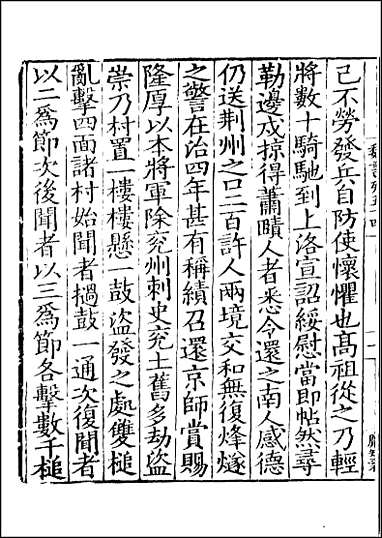 己不勞發兵自防使懷懼也髙祖從之乃輕
將數十騎馳到上洛宣詔綏慰當即帖然尋
勒邊戍掠得蕭賾人者悉令還之南人感德
仍送荆州之口二百許人兩境交和無復烽燧
之警在治四年甚有稱績召還京師賞賜
隆厚以本將軍除兖州刺史兖土舊多劫盜
崇乃村置一樓樓懸一鼓盜發之處雙槌
亂擊四面諸村始聞者撾鼓一通次復聞者
以二爲節次後聞者以三爲節各擊數千槌